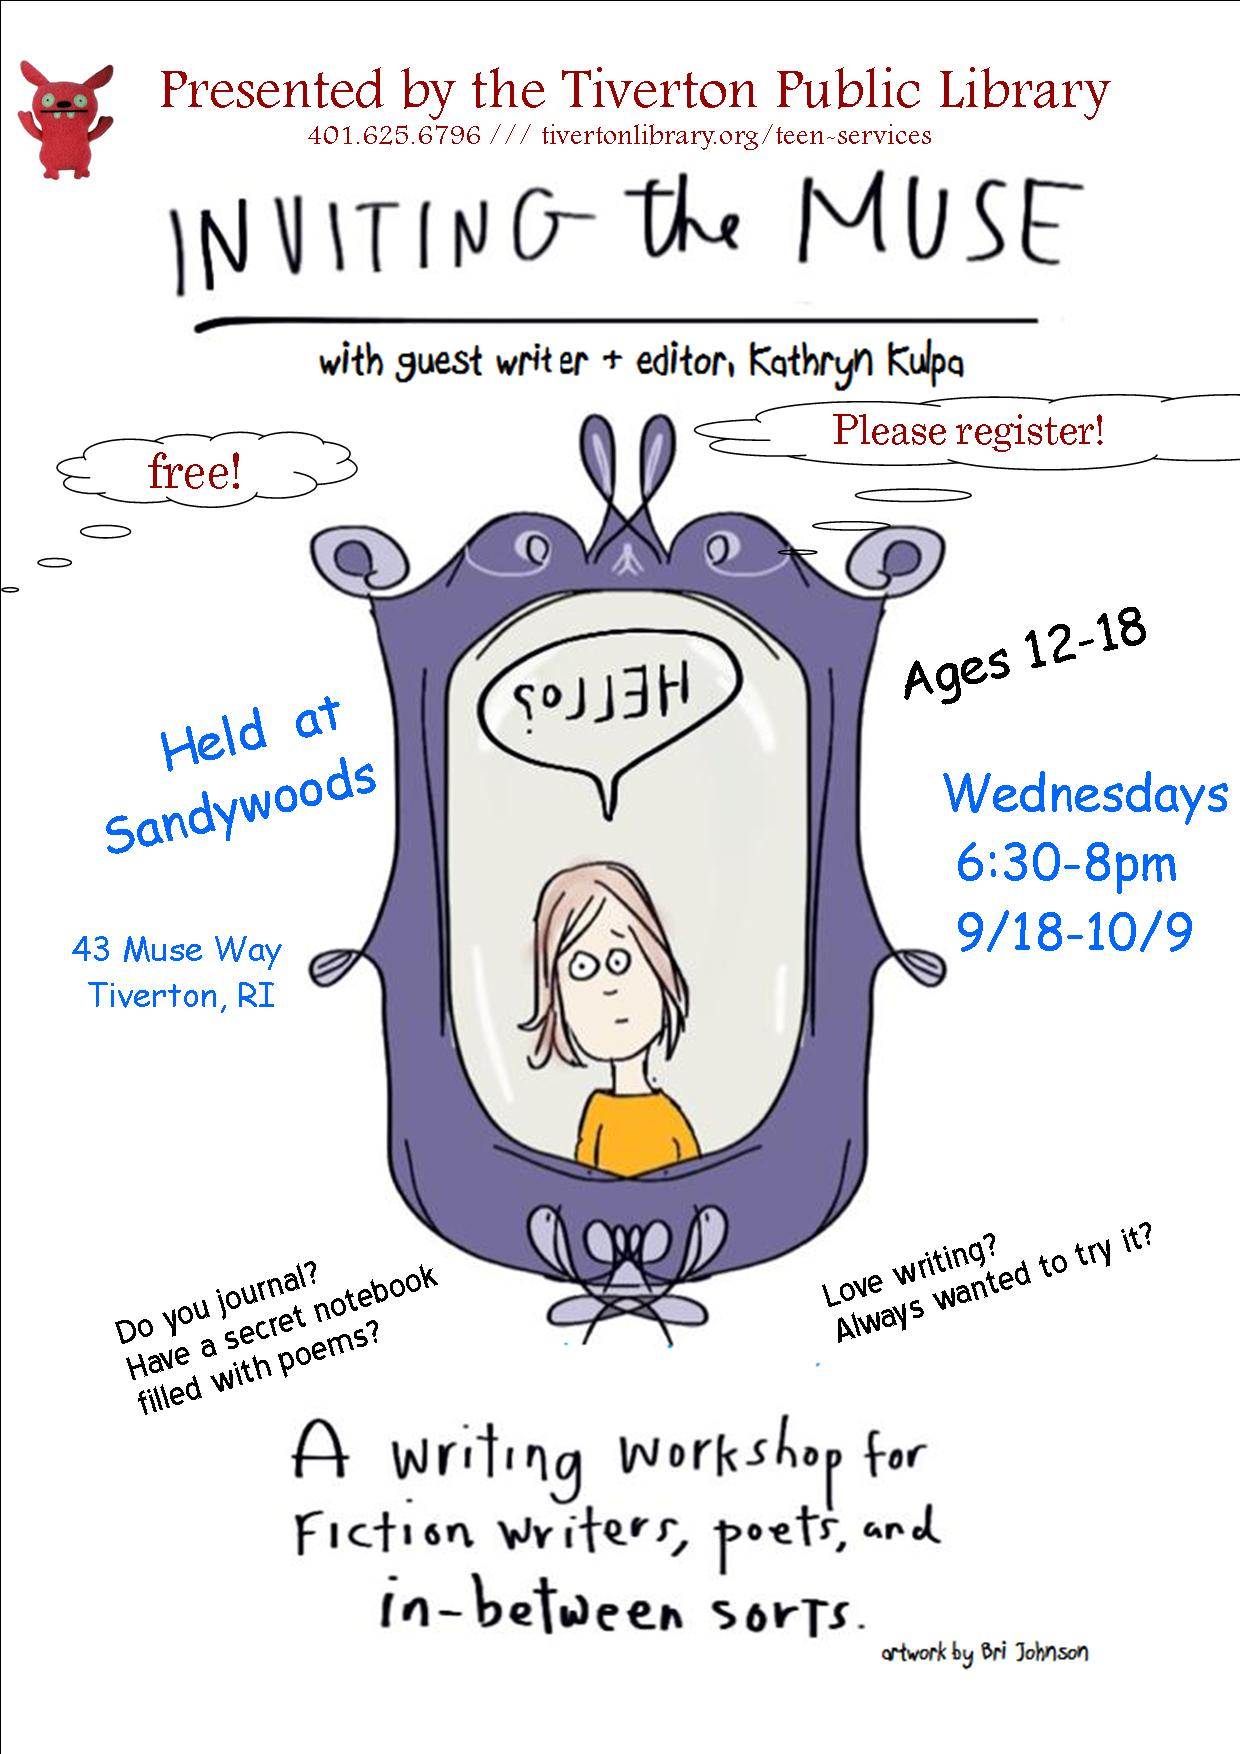 Presented by the Tiverton Public Library
401.625.6796 /// tivertonlibrary.org/teen-services
INVITING the MUSE
with guest writer + editor, Kathryn Kulpa
free!
Please register!
HELLO?
Ages 12-18
Held at
Sandywoods
Wednesdays
6:30-8pm
9/18-10/9
43 Muse Way
Tiverton, RI
Do you journal?
Have a secret notebook
filled with poems?
Love writing?
Always wanted to try it?
A writing workshop for
Fiction writers, poets, and
in-between sorts.
artwork by Bri Johnson